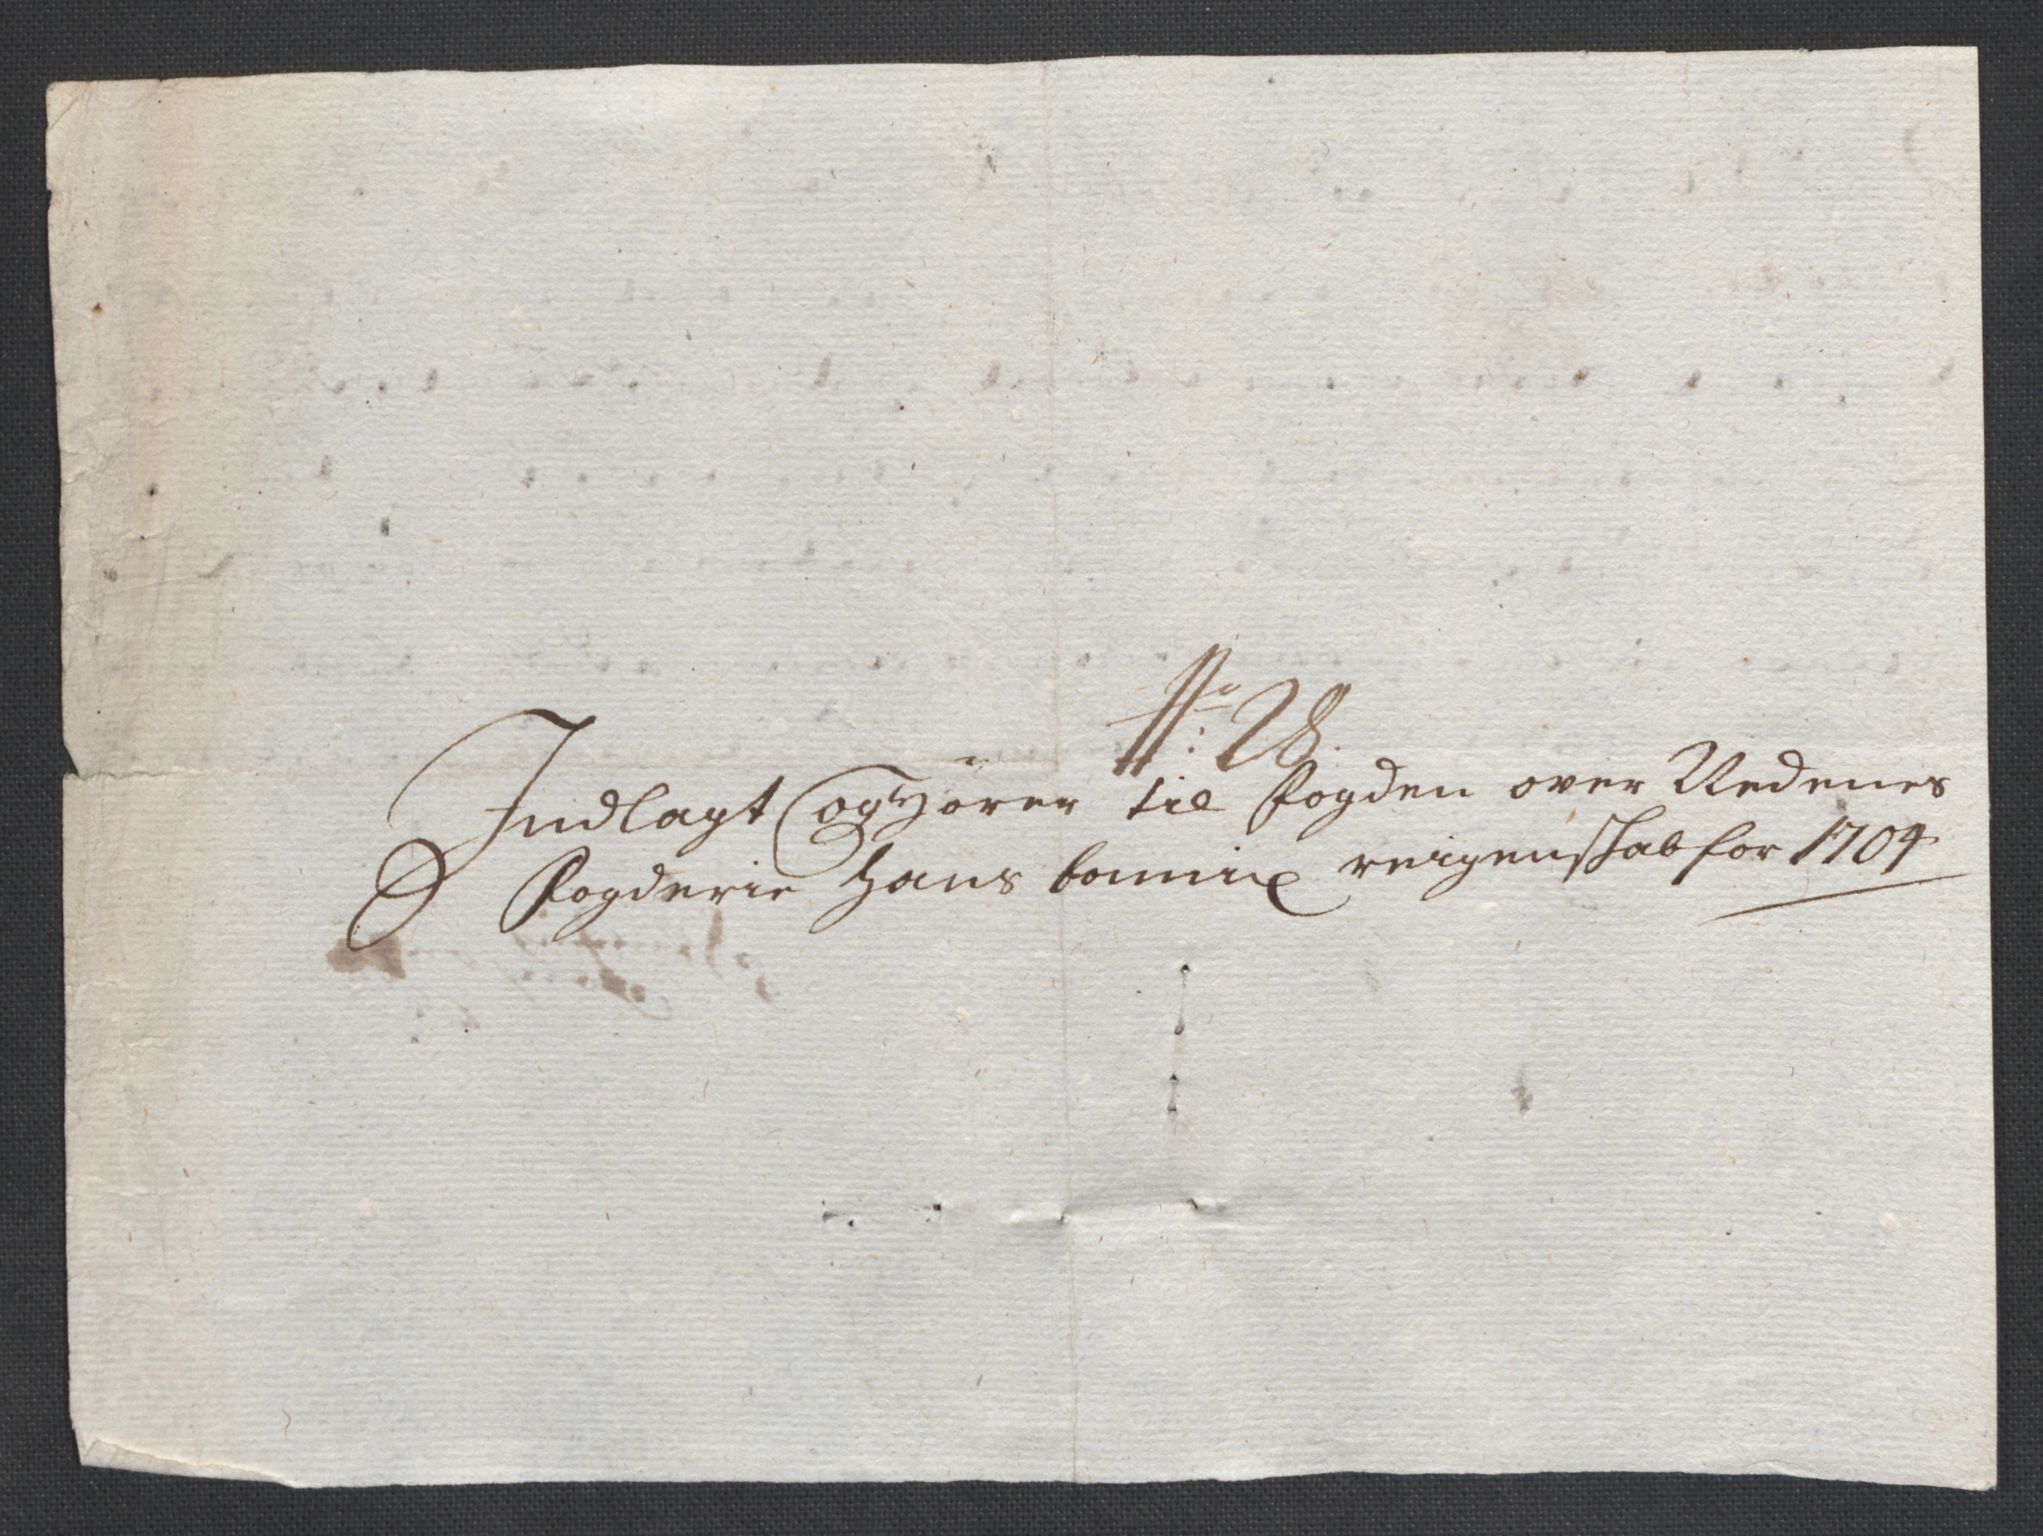 No: 28.
Indlagt og hörer til Fogden over Nedenes
Fogderie Hans bennix reigenschab for 1704